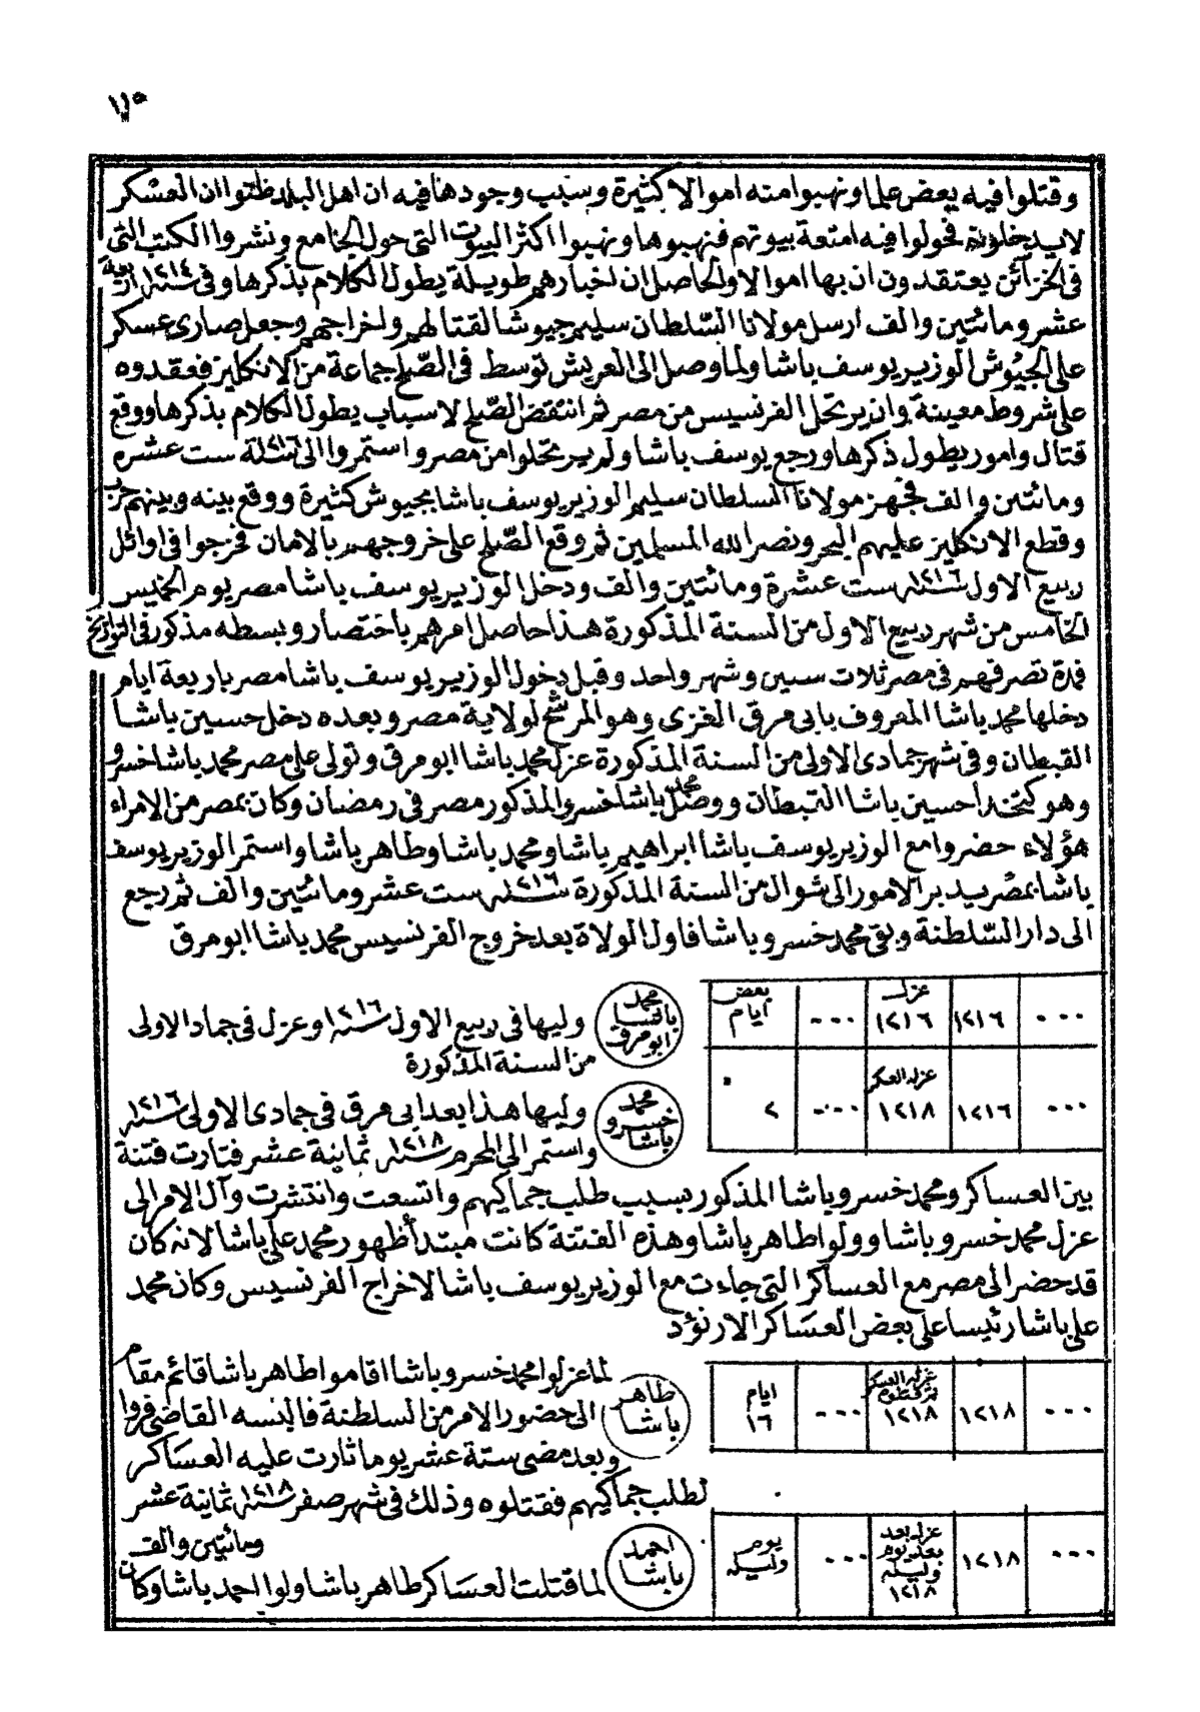 ١٧٥
وقتلوا فيه بعض علما ونهبوا منه اموالا كثيرة وسبب وجودها فيه ان اهل البلد ظنوا ان العسكر
لا يدخلونه فحولوا فيه امتعة بيوتهم فنهبوها ونهبوا اكثر البيوت التى حول الجامع ونشروا الكتب التى
فى الخزائن يعتقدون ان بها اموالا والحاصل ان اخبارهم طويلة يطول الكلام بذكرها وفى سنة ١٢١٤ اربعة
عشر ومائتين والف ارسل مولانا السّلطان سليم جيوشا لقتالهم واخراجهم وجعل صارى عسكر
على الجيُوش الوزير يوسف باشا ولما وصل الى العريش توسط فى الصّلح جماعة من الانكليز فعقدوه
على شروط معينة وان يرتحل الفرنسيس من مصر ثم انتقض الصّلح لاسباب يطول الكلام بذكرها ووقع
قتال وامور يطول ذكرها ورجع يوسف باشا ولم يرتحلوا من مصر واستمروا الى سنة ١٢١٦ ست عشره
ومائتين والف فجهز مولانا السلطان سليم الوزير يوسف باشا بجيوش كثيرة ووقع بينه وبينهم حرب
وقطع الانكليز عليهم البحر ونصر الله المسلمين ثم وقع الصّلح على خروجهم بالامان فخرجوا فى اوائل
ربيع الاول سنة ١٢١٦ ست عشرة ومائتين والف ودخل الوزير يوسف باشا مصر يوم الخميس
الخامس من شهر ربيع الاول من السنة المذكورة هذا حاصل امرهم باختصار وبسطه مذكور فى التواريخ
فمدة تصرفهم فى مصر ثلاث سنين وشهر واحد وقبل دخول الوزير يوسف باشا مصر باربعة ايام
دخلها محمد باشا المعروف بابى مرق الغزى وهو المرشح لولاية مصر وبعده دخل حسين باشا
القبطان وفى شهر جمادى الاولى من السنة المذكورة عزل محمد باشا ابو مرق وتولى على مصر محمد باشا خسرو
وهو كتخدا حسين باشا القبطان ووصل محمد باشا خسرو المذكور مصر فى رمضان وكان بمصر من الامراء
هؤلاء حضروا مع الوزير يوسف باشا ابراهيم باشا ومحمد باشا وطاهر باشا واستمر الوزير يوسف
باشا بمصر يدبر الامور الى شوال من السنة المذكورة سنة ١٢١٦ ست عشر ومائتين والف ثم رجع
الى دار السّلطنة وبقى محمد خسرو باشا فاول الولاة بعد خروج الفرنسيس محمد باشا ابو مرق
... ١٢١٦ عزل ١٢١٦ ... بعض ايام
محمد باشا ابو مرق
وليها فى ربيع الاول سنة ١٢١٦ وعزل فى جماد الاولى
من السنة المذكورة
... ١٢١٦ عزله العسكر ١٢١٨ ... ٢
محمد خسرو باشا
وليها هذا بعد ابى مرق فى جمادى الاولى سنة ١٢١٦
واستمر الى المحرم سنة ١٢١٨ ثمانية عشر فثارت فتنة
بين العساكر ومحمد خسرو باشا المذكور بسبب طلب جماكيهم واتسعت وانتشرت وآل الامر الى
عزل محمد خسرو باشا وولوا طاهر باشا وهذه الفتنة كانت مبتدأ ظهور محمد على باشا لانه كان
قد حضر الى مصر مع العساكر التى جاءت مع الوزير يوسف باشا لاخراج الفرنسيس وكان محمد
على باشا رئيسا على بعض العسَاكر الارنؤد
... ١٢١٨ عزله العسكر ١٢١٨ ... ايام ١٦
طاهر باشا
لما عزلوا محمد خسرو باشا اقاموا طاهر باشا قائم مقام
الى حضور الامر من السلطنة فالبسه القاضى فروا
وبعد مضى ستة عشر يوما ثارت عليه العسَاكر
لطلب جماكيهم فقتلوه وذلك فى شهر صفر سنة ١٢١٨ ثمانية عشر
ومائتين والف
... ١٢١٨ عزله بعد يوم وليلة ١٢١٨ ... يوم وليلة
احمد باشا
لما قتلت العسَاكر طاهر باشا ولوا احمد باشا وكان